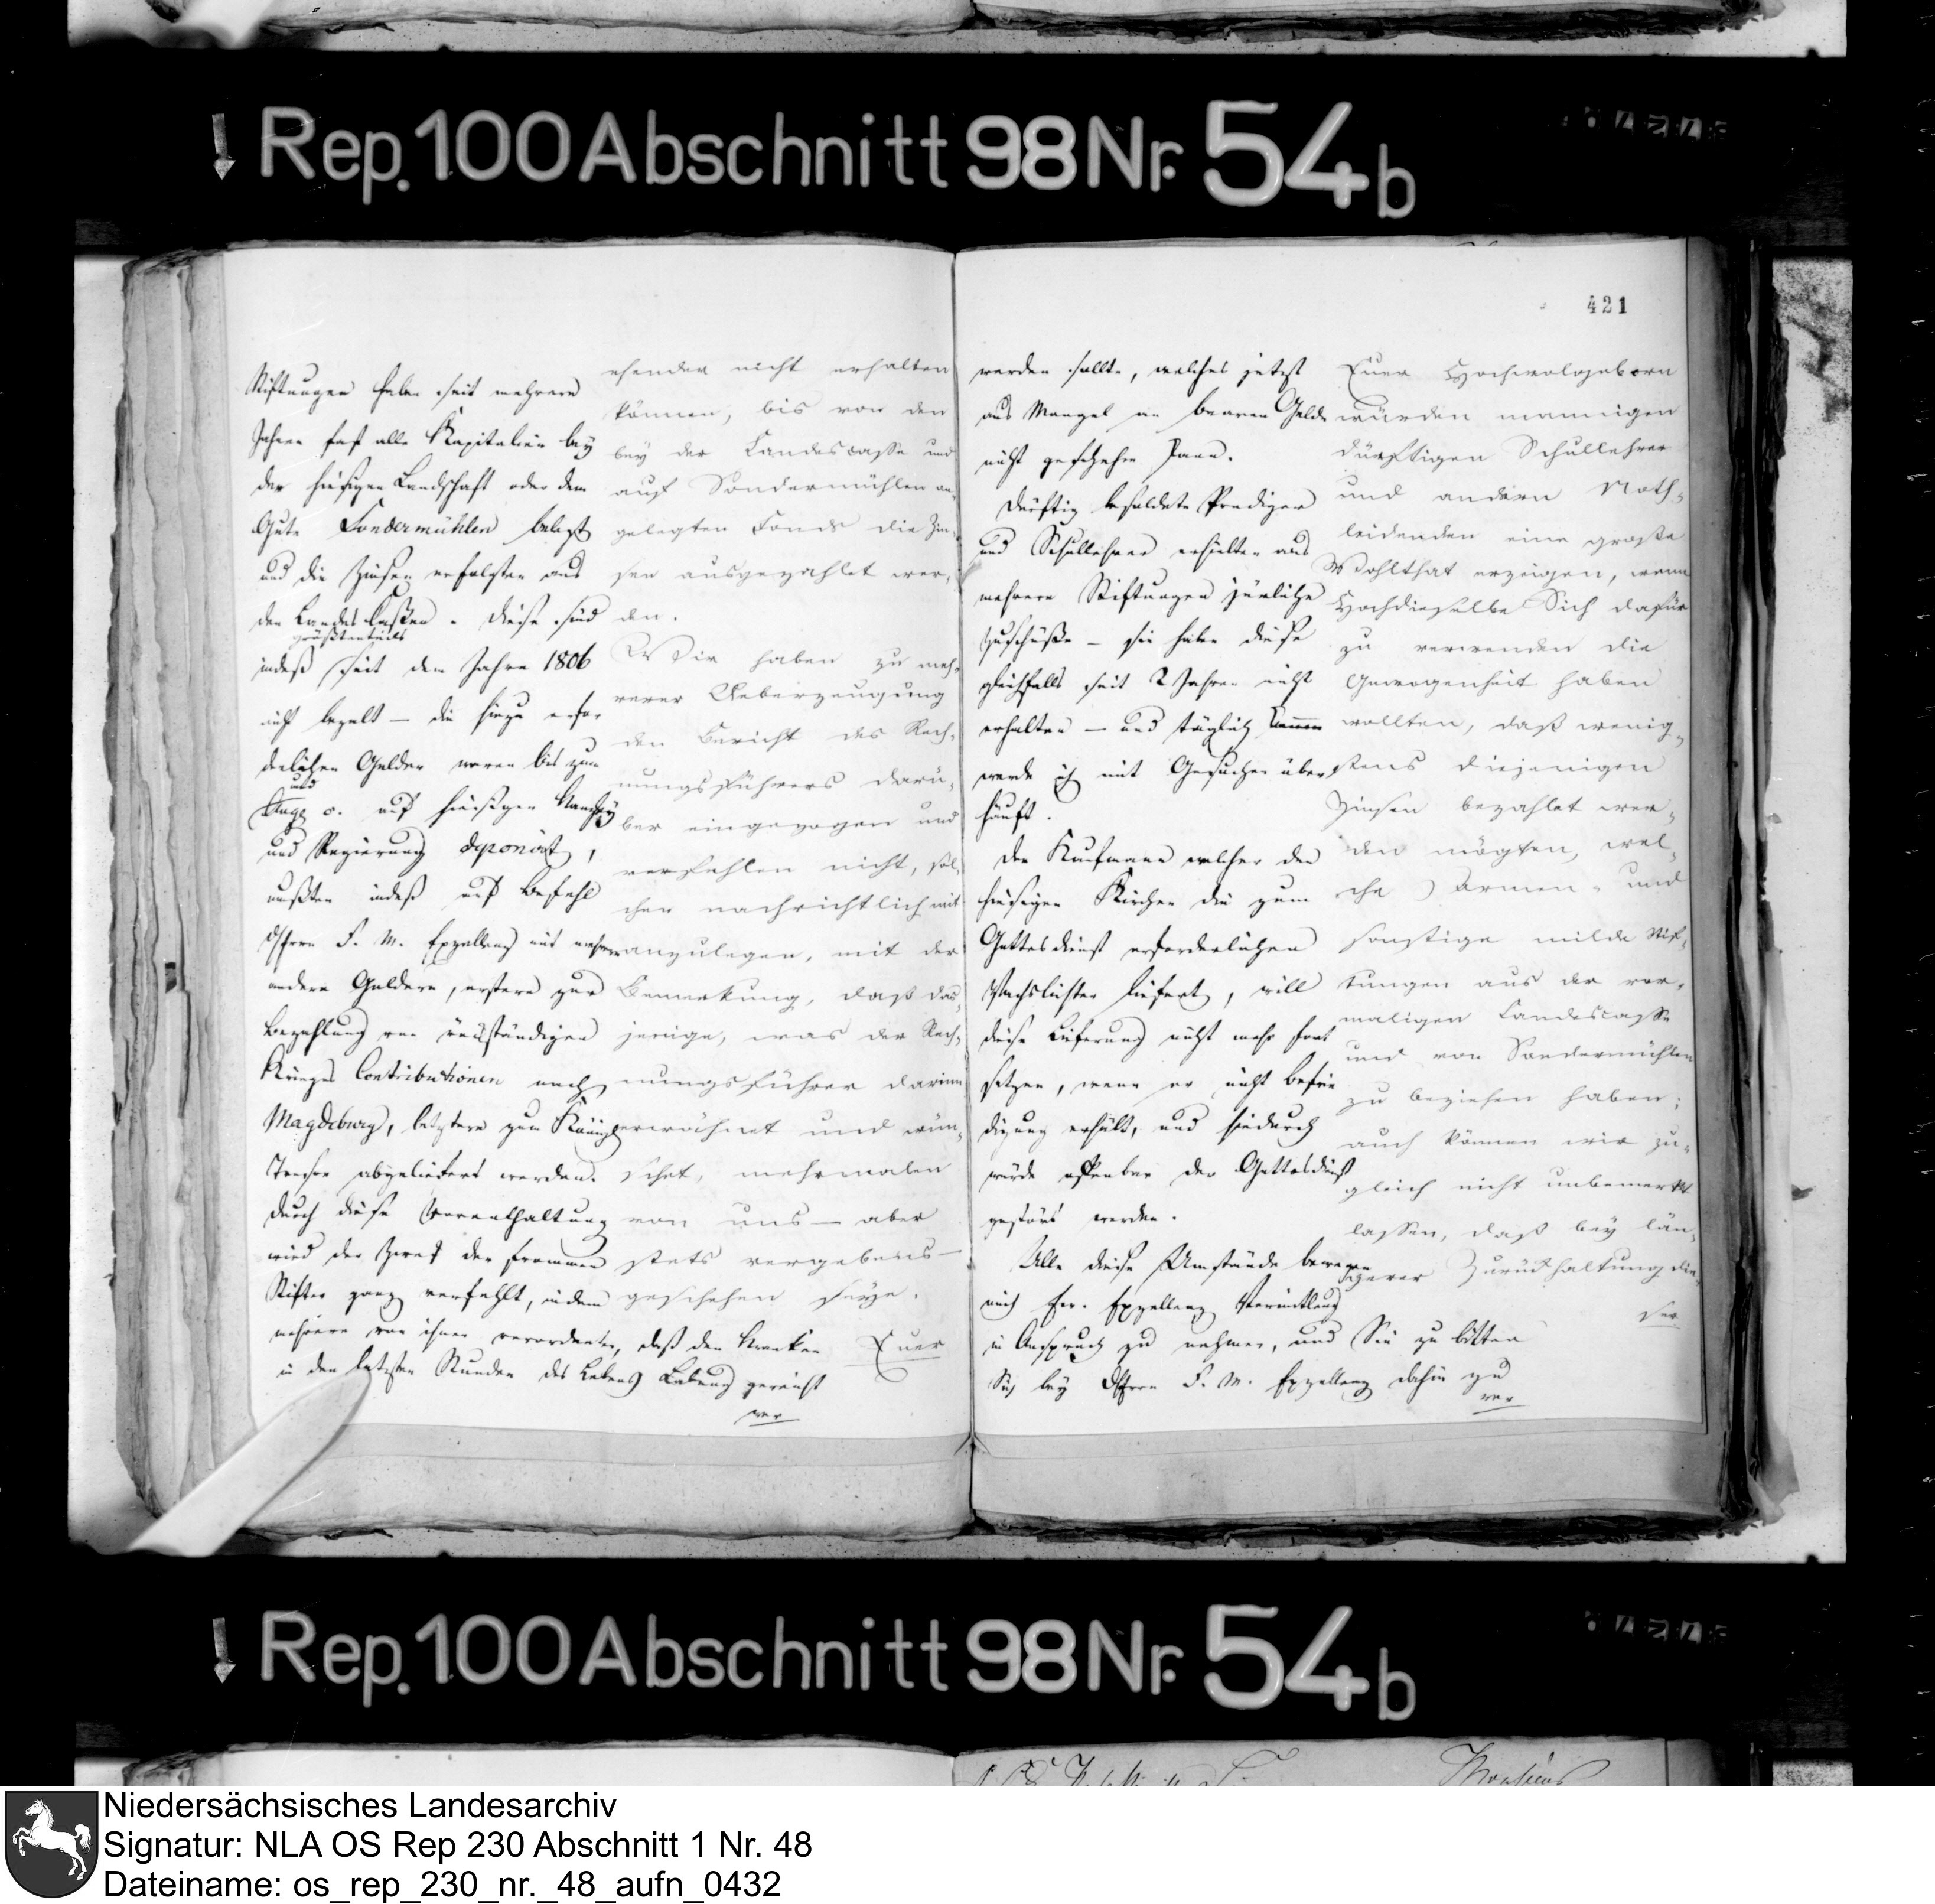 Rep. 100 Abschnitt 98 Nr. 54b
421
Stiftungen haben seit mehrern
Jahren fast alle Kapitalien bey
der hiesigen Landschaft oder dem
Gute Sondermühlen belegt
und die Zinsen erfolgten aus
den Landes Caßen. Diese sind
größtentheils
indeß seit dem Jahre 1806
nicht bezalt — die hiezu erfor
derlichen Gelder waren bis zum
auf hiesigen
und Regierung deponirt,
mußten indeß auf Befehl
F. M. Exzellenz mit mehrern
andern Geldern, erstere zur
Bezahlung von rükständigen
Krieges Contributionen nach
Magdeburg, letztere zum
Tresor abgeliefert werden.
Durch diese Vorenthaltung
wird der Zwek der frommen
Stifter ganz verfehlt, indem
mehrere von ihnen verordneten, daß den Kranken
in den letzten Stunden des Lebens Labung gereicht
wer
ehender nicht erhalten
können, bis von den
bey der Landescasse und
auf Sondermühlen an-
gelegten Fonds die Zin-
sen ausgezahlet wer-
den.
Wir haben zu meh-
rerer Ueberzeugung
den Bericht des Rech-
nungsführers darü-
ber eingezogen und
verfehlen nicht, sol-
chen nachrichtlich mit
anzulegen, mit der
Bemerkung, daß das-
jenige, was der Rech-
nungsführer darinn
erwähnet und wün-
schet, mehrmalen
von uns — aber
stets vergebens —
geschehen seye.
Euer
werden sollte, welches jetzt
aus Mangel an baaren Gelde
nicht geschehen kann.
Dürftig besoldete Prediger
und Schullehrer erhielten aus
mehrern Stiftungen järliche
Zuschüße — sie haben diese
gleichfalls seit 2 Jahren nicht
erhalten — und täglich
werde ich mit Gesuchen über
häuft.
Der Kaufmann welcher den
hiesigen Kirchen die zum
Gottesdienst erforderlichen
Wachslichter liefert, will
diese Lieferung nicht mehr fort
setzen, wenn er nicht Befrie
digung erhält, und hiedurch
würde offenbar der Gottesdienst
gestört werden.
Alle diese Umstände bewegen
mich Ew. Exzellenz Vermittlung
in Anspruch zu nehmen, und Sie zu bitten
Sich bey F. M. Exzellenz dahin zu
ver
Euer Hochwolgeborn
würden mannigen
dürftigen Schullehrer
und andern Noth-
leidenden eine große
Wohlthat erzeigen, wenn
Hochdieselbe Sich dafür
zu verwenden die
Gewogenheit haben
wollten, daß wenig-
stens diejenigen
Zinsen bezahlet wer-
den mögten, wel-
che Armen- und
sonstige milde Stif-
tungen aus der vor-
maligen Landescasse
und von Sondermühlen
zu beziehen haben;
auch können wir zu-
gleich nicht unbemerkt
lassen, daß bey län-
gerer Zurückhaltung die-
ser
Rep. 100 Abschnitt 98 Nr. 54b
Niedersächsisches Landesarchiv
Signatur: NLA OS Rep 230 Abschnitt 1 Nr. 48
Dateiname: os_rep_230_nr._48_aufn_0432